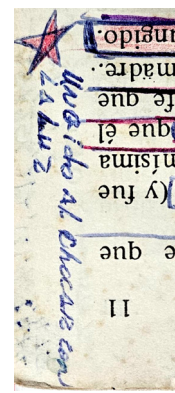 11
e que
(y fue
nísima
que él
fe que
madre.
ungido.
al chocar con
la luz